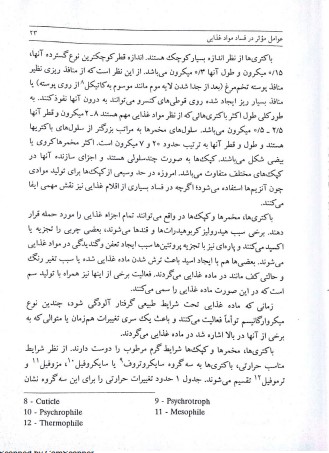 عوامل مؤثر در فساد مواد غذایی ۲۳
باکتری‌ها از نظر اندازه بسیار کوچک هستند. اندازه قطر کوچکترین نوع گسترده آنها،
۰/۱۵ میکرون و طول آنها ۰/۳ میکرون می‌باشد. از این نظر است که از منافذ ریزی نظیر
منافذ پوسته تخم‌مرغ (بعد از جدا شدن لایه موم مانند موسوم به کاتیکل۸ از روی پوسته) یا
منافذ بسیار ریز ایجاد شده روی قوطی‌های کنسرو می‌توانند به درون آنها نفوذ کنند. به
طور کلی طول اکثر باکتری‌هائی که از نظر مواد غذایی مهم هستند ۸ــ۲ میکرون و قطر آنها
۲/۵ ــ ۰/۵ میکرون می‌باشد. سلول‌های مخمرها به مراتب بزرگتر از سلول‌های باکتریها
هستند و طول و قطر آنها به ترتیب حدود ۲۰ و ۷ میکرون است. اکثر مخمرها کروی یا
بیضی شکل می‌باشند. کپک‌ها به صورت چندسلولی هستند و اجزای سازنده آنها در
کپک‌های مختلف متفاوت می‌باشد. امروزه در حد وسیعی از کپک‌ها برای تولید موادی
چون آنزیم‌ها استفاده می‌شود؛ اگرچه در فساد بسیاری از اقلام غذایی نیز نقش مهمی ایفا
می‌کنند.
باکتری، مخمرها و کپک‌ها در واقع می‌توانند تمام اجزاء غذایی را مورد حمله قرار
دهند. برخی سبب هیدرولیز کربوهیدرات‌ها و قندها می‌شوند، بعضی چربی را تجزیه یا
اکسید می‌کنند و پاره‌ای نیز با تجزیه پروتئین‌ها سبب ایجاد تعفن و گندیدگی در مواد غذایی
می‌شوند. بعضی‌ها هم با ایجاد اسید باعث ترش شدن ماده غذایی شده یا سبب تغیر رنگ
و حالتی کف مانند در ماده غذایی می‌گردند. فعالیت برخی از اینها نیز همراه با تولید سم
است که در این صورت ماده غذایی را سمی می‌کنند.
زمانی که ماده غذایی تحت شرایط طبیعی گرفتار آلودگی شود، چندین نوع
میکروارگانیسم توأماً فعالیت می‌کنند و باعث یک سری تغییرات همزمان یا متوالی که به
برخی از آنها در بالا اشاره شد در ماده غذایی می‌گردند.
باکتری، مخمرها و کپک‌ها شرایط گرم مرطوب را دوست دارند. از نظر شرایط
مناسب حرارتی، باکتری‌ها به سه گروه سایکروتروف۹ یا سایکروفیل۱۰، مزوفیل۱۱ و
ترموفیل۱۲ تقسیم می‌شوند. جدول ۱ حدود تغییرات حرارتی را برای این سه گروه نشان
8 - Cuticle 9 - Psychrotroph
10 - Psychrophile 11 - Mesophile
12 - Thermophile